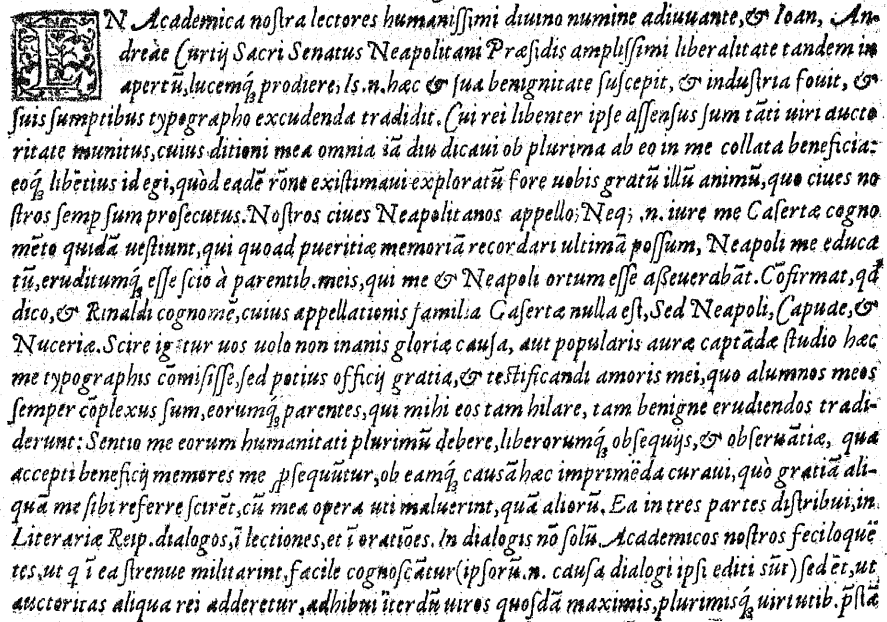 IN Academica noſtra lectores humaniſſimi diuino numine adiuuante, & Ioan, An-
dreæ Curtij Sacri Senatus Neapolitani Præſidis ampliſſimi liberalitate tandem in
apertū, lucemq́; prodiere; Is .n. hæc & ſua benignitate ſuſcepit, & induſtria fouit, &
ſuis ſumptibus typographo excudenda tradidit. Cui rei libenter ipſe aſſenſus ſum tāti uiri aucto
ritate munitus, cuius ditioni mea omnia iā diu dicaui ob plurima ab eo in me collata beneficia:
eoq́; libētius id egi, quòd eadē rōne exiſtimaui exploratū fore uobis gratū illū animū, quo ciues no
ſtros ſemp ſum proſecutus. Noſtros ciues Neapolitanos appello; Neq; .n. iure me Caſertæ cogno
mēto quidā ueſtiunt, qui quoad pueritiæ memoriā recordari ultimā poſſum, Neapoli me educa
tū, eruditumq́; eſſe ſcio à parentib. meis, qui me & Neapoli ortum eſſe aßeuerabāt. Cōfirmat, qd
dico, & Rinaldi cognomē, cuius appellationis familia Caſertæ nulla eſt, Sed Neapoli, Capuæ, &
Nuceriæ. Scire igitur uos uolo non inanis gloriæ cauſa, aut popularis auræ captādæ ſtudio hæc
me typographis cōmiſiſſe, ſed potius officij gratia, & teſtificandi amoris mei, quo alumnos meos
ſemper cōplexus ſum, eorumq́; parentes, qui mihi eos tam hilare, tam benigne erudiendos tradi-
derunt: Sentio me eorum humanitati plurimū debere, liberorumq́; obſequijs, & obſeruātiæ, qua
accepti beneficij memores me ꝓſequūtur, ob eamq́; causā hæc imprimēda curaui, quò gratiā ali-
quā me ſibi referre ſcirēt, cū mea opera uti maluerint, quā aliorū. Ea in tres partes diſtribui, in
Literariæ Reip. dialogos, ī lectiones, et ī oratiōes. In dialogis nō ſolū Academicos noſtros feci loquē
tes, ut q ī ea ſtrenue militarint, facile cognoſcātur (ipſorū .n. cauſa dialogi ipſi editi sūt) ſed ēt, ut
auctoritas aliqua rei adderetur, adhibui īterdū uiros quoſdā maximis, plurimisq́; uirtutib. p̄ſtā